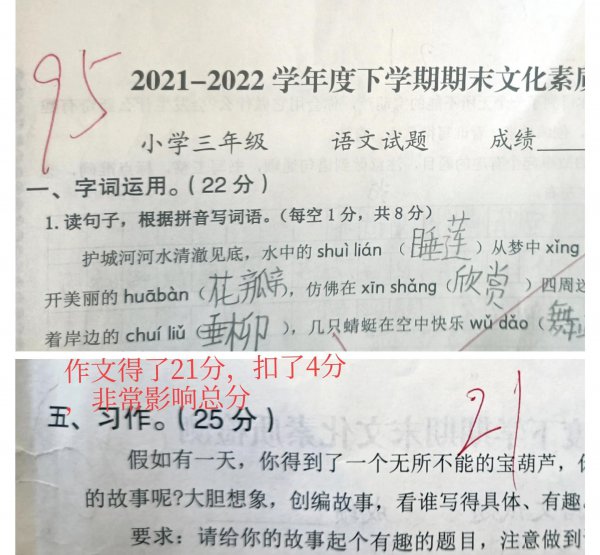 95
2021-2022 学年度下学期期末文化素质
小学三年级 语文试题 成绩
一、字词运用。(22 分)
1. 读句子，根据拼音写词语。(每空 1 分，共 8 分)
护城河河水清澈见底，水中的 shuì lián （睡莲）从梦中 xǐng
开美丽的 huābàn（花瓣），仿佛在 xīn shǎng（欣赏）四周
着岸边的 chuí liǔ（垂柳），几只蜻蜓在空中快乐 wǔ dǎo（舞
作文得了21分，扣了4分
，非常影响总分
21
五、习作。(25 分)
假如有一天，你得到了一个无所不能的宝葫芦，
的故事呢?大胆想象，创编故事，看谁写得具体、有趣。
要求：请给你的故事起个有趣的题目，注意做到